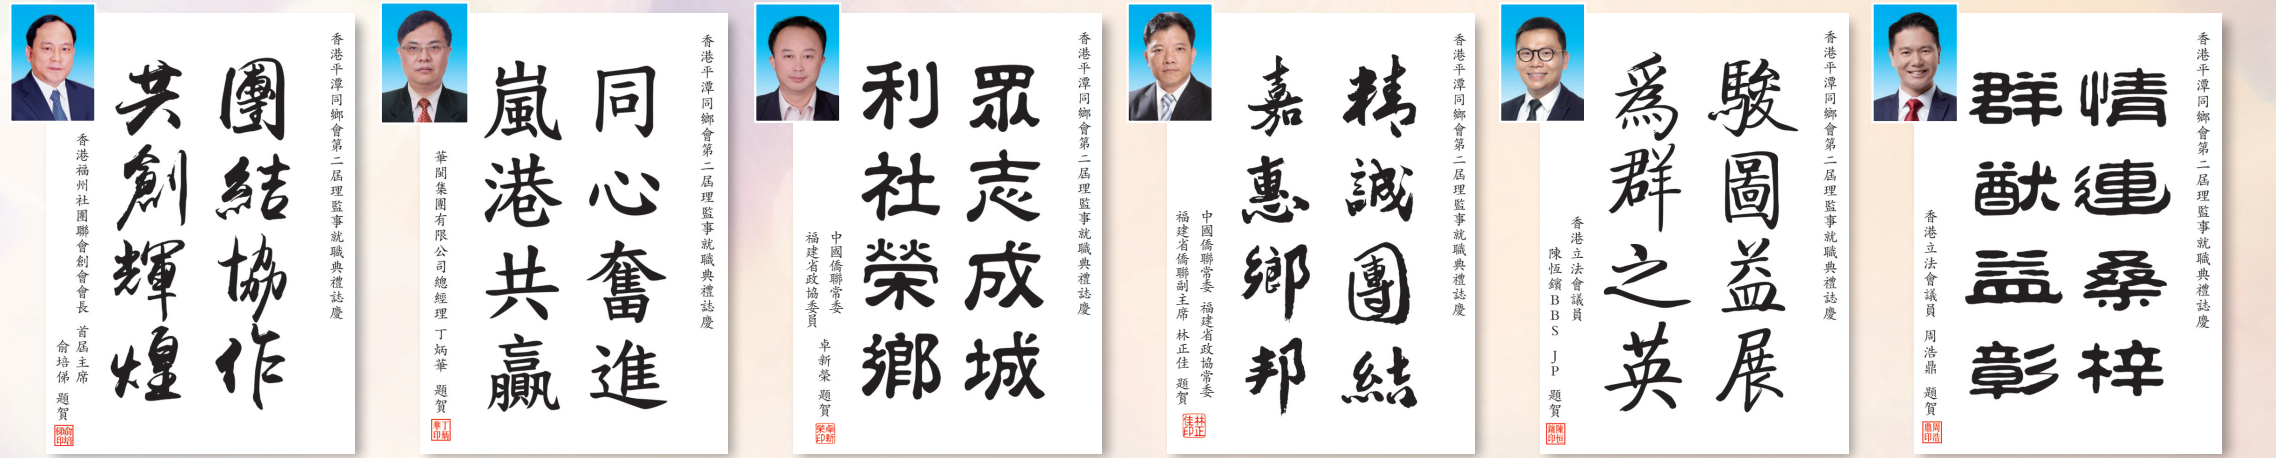 香港平潭同鄉會第二屆理監事就職典禮誌慶
團結協作
共創輝煌
香港福州社團聯會創會會長 首屆主席
俞培俤 題賀
俞培俤印
香港平潭同鄉會第二屆理監事就職典禮誌慶
同心奮進
嵐港共贏
華閩集團有限公司總經理 丁炳華 題賀
丁炳華印
香港平潭同鄉會第二屆理監事就職典禮誌慶
眾志成城
利社榮鄉
中國僑聯常委
福建省政協委員 卓新榮 題賀
卓新榮印
香港平潭同鄉會第二屆理監事就職典禮誌慶
精誠團結
嘉惠鄉邦
中國僑聯常委 福建省政協常委
福建省僑聯副主席 林正佳 題賀
林正佳印
香港平潭同鄉會第二屆理監事就職典禮誌慶
駿圖益展
為群之英
香港立法會議員
陳恆鑌BBS JP 題賀
陳恒鑌印
香港平潭同鄉會第二屆理監事就職典禮誌慶
情連桑梓
群猷益彰
香港立法會議員 周浩鼎 題賀
周浩鼎印